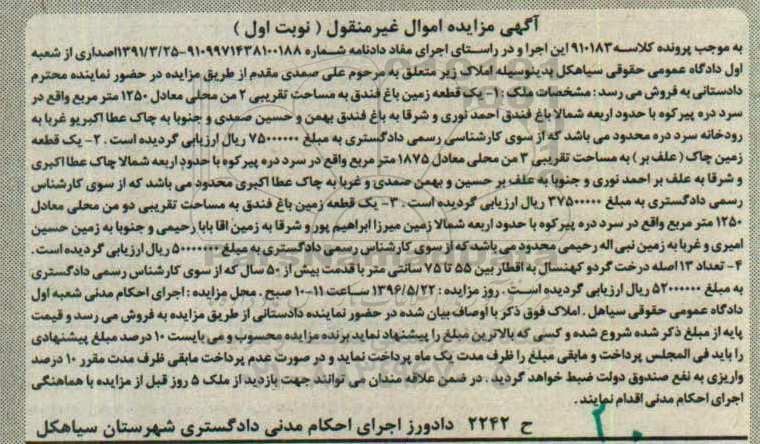 آگهی مزایده اموال غیرمنقول ( نوبت اول )
به موجب پرونده کلاسه ۹۱۰۱۸۳ این اجرا و در راستای اجرای مفاد دادنامه شماره ۹۱۰۹۹۷۱۴۳۸۱۰۰۱۸۸-۱۳۹۱/۳/۲۵اصداری از شعبه
اول دادگاه عمومی حقوقی سیاهکل بدینوسیله املاک زیر متعلق به مرحوم علی صمدی مقدم از طریق مزایده در حضور نماینده محترم
دادستانی به فروش می رسد : مشخصات ملک : ۱- یک قطعه زمین باغ فندق به مساحت تقریبی ۲ من محلی معادل ۱۲۵۰ متر مربع واقع در
سرد دره پیرکوه با حدود اربعه شمالا باغ فندق احمد نوری و شرقا به باغ فندق بهمن و حسین صمدی و جنوبا به چاک عطا اکبریو غربا به
رودخانه سرد دره محدود می باشد که از سوی کارشناسی رسمی دادگستری به مبلغ ۷۵۰۰۰۰۰۰ ریال ارزیابی گردیده است . ۲- یک قطعه
زمین چاک ( علف بر ) به مساحت تقریبی ۳ من محلی معادل ۱۸۷۵ متر مربع واقع در سرد دره پیر کوه با حدود اربعه شمالا چاک عطا اکبری
و شرقا به علف بر احمد نوری و جنوبا به علف بر حسین و بهمن صمدی و غربا به چاک عطا اکبری محدود می باشد که از سوی کارشناس
رسمی دادگستری به مبلغ ۳۷۵۰۰۰۰۰ ریال ارزیابی گردیده است . ۳- یک قطعه زمین باغ فندق به مساحت تقریبی دو من محلی معادل
۱۲۵۰ متر مربع واقع در سرد دره پیرکوه با حدود اربعه شمالا زمین میرزا ابراهیم پور و شرقا به زمین اقا بابا رحیمی و جنوبا به زمین حسین
امیری و غربا به زمین نبی اله رحیمی محدود می باشد که از سوی کارشناس رسمی دادگستری به مبلغ ۵۰۰۰۰۰۰۰ ریال ارزیابی گردیده است .
۴- تعداد ۱۳ اصله درخت گردو کهنسال به اقطار بین ۵۵ تا ۷۵ سانتی متر با قدمت بیش از ۵۰ سال که از سوی کارشناس رسمی دادگستری
به مبلغ ۵۲۰۰۰۰۰۰ ریال ارزیابی گردیده است . روز مزایده : ۱۳۹۶/۵/۲۲ ساعت ۱۱-۱۰ صبح . محل مزایده : اجرای احکام مدنی شعبه اول
دادگاه عمومی حقوقی سیاهل . املاک فوق ذکر با اوصاف بیان شده در حضور نماینده دادستانی از طریق مزایده به فروش می رسد و قیمت
پایه از مبلغ ذکر شده شروع شده و کسی که بالاترین مبلغ را پیشنهاد نماید برنده مزایده محسوب و می بایست ۱۰ درصد مبلغ پیشنهادی
را باید فی المجلس پرداخت و مابقی مبلغ را ظرف مدت یک ماه پرداخت نماید و در صورت عدم پرداخت مابقی ظرف مدت مقرر ۱۰ درصد
واریزی به نفع صندوق دولت ضبط خواهد گردید . در ضمن علاقه مندان می توانند جهت بازدید از ملک ۵ روز قبل از مزایده با هماهنگی
اجرای احکام مدنی اقدام نمایند .
ح ۲۲۴۲ دادورز اجرای احکام مدنی دادگستری شهرستان سیاهکل